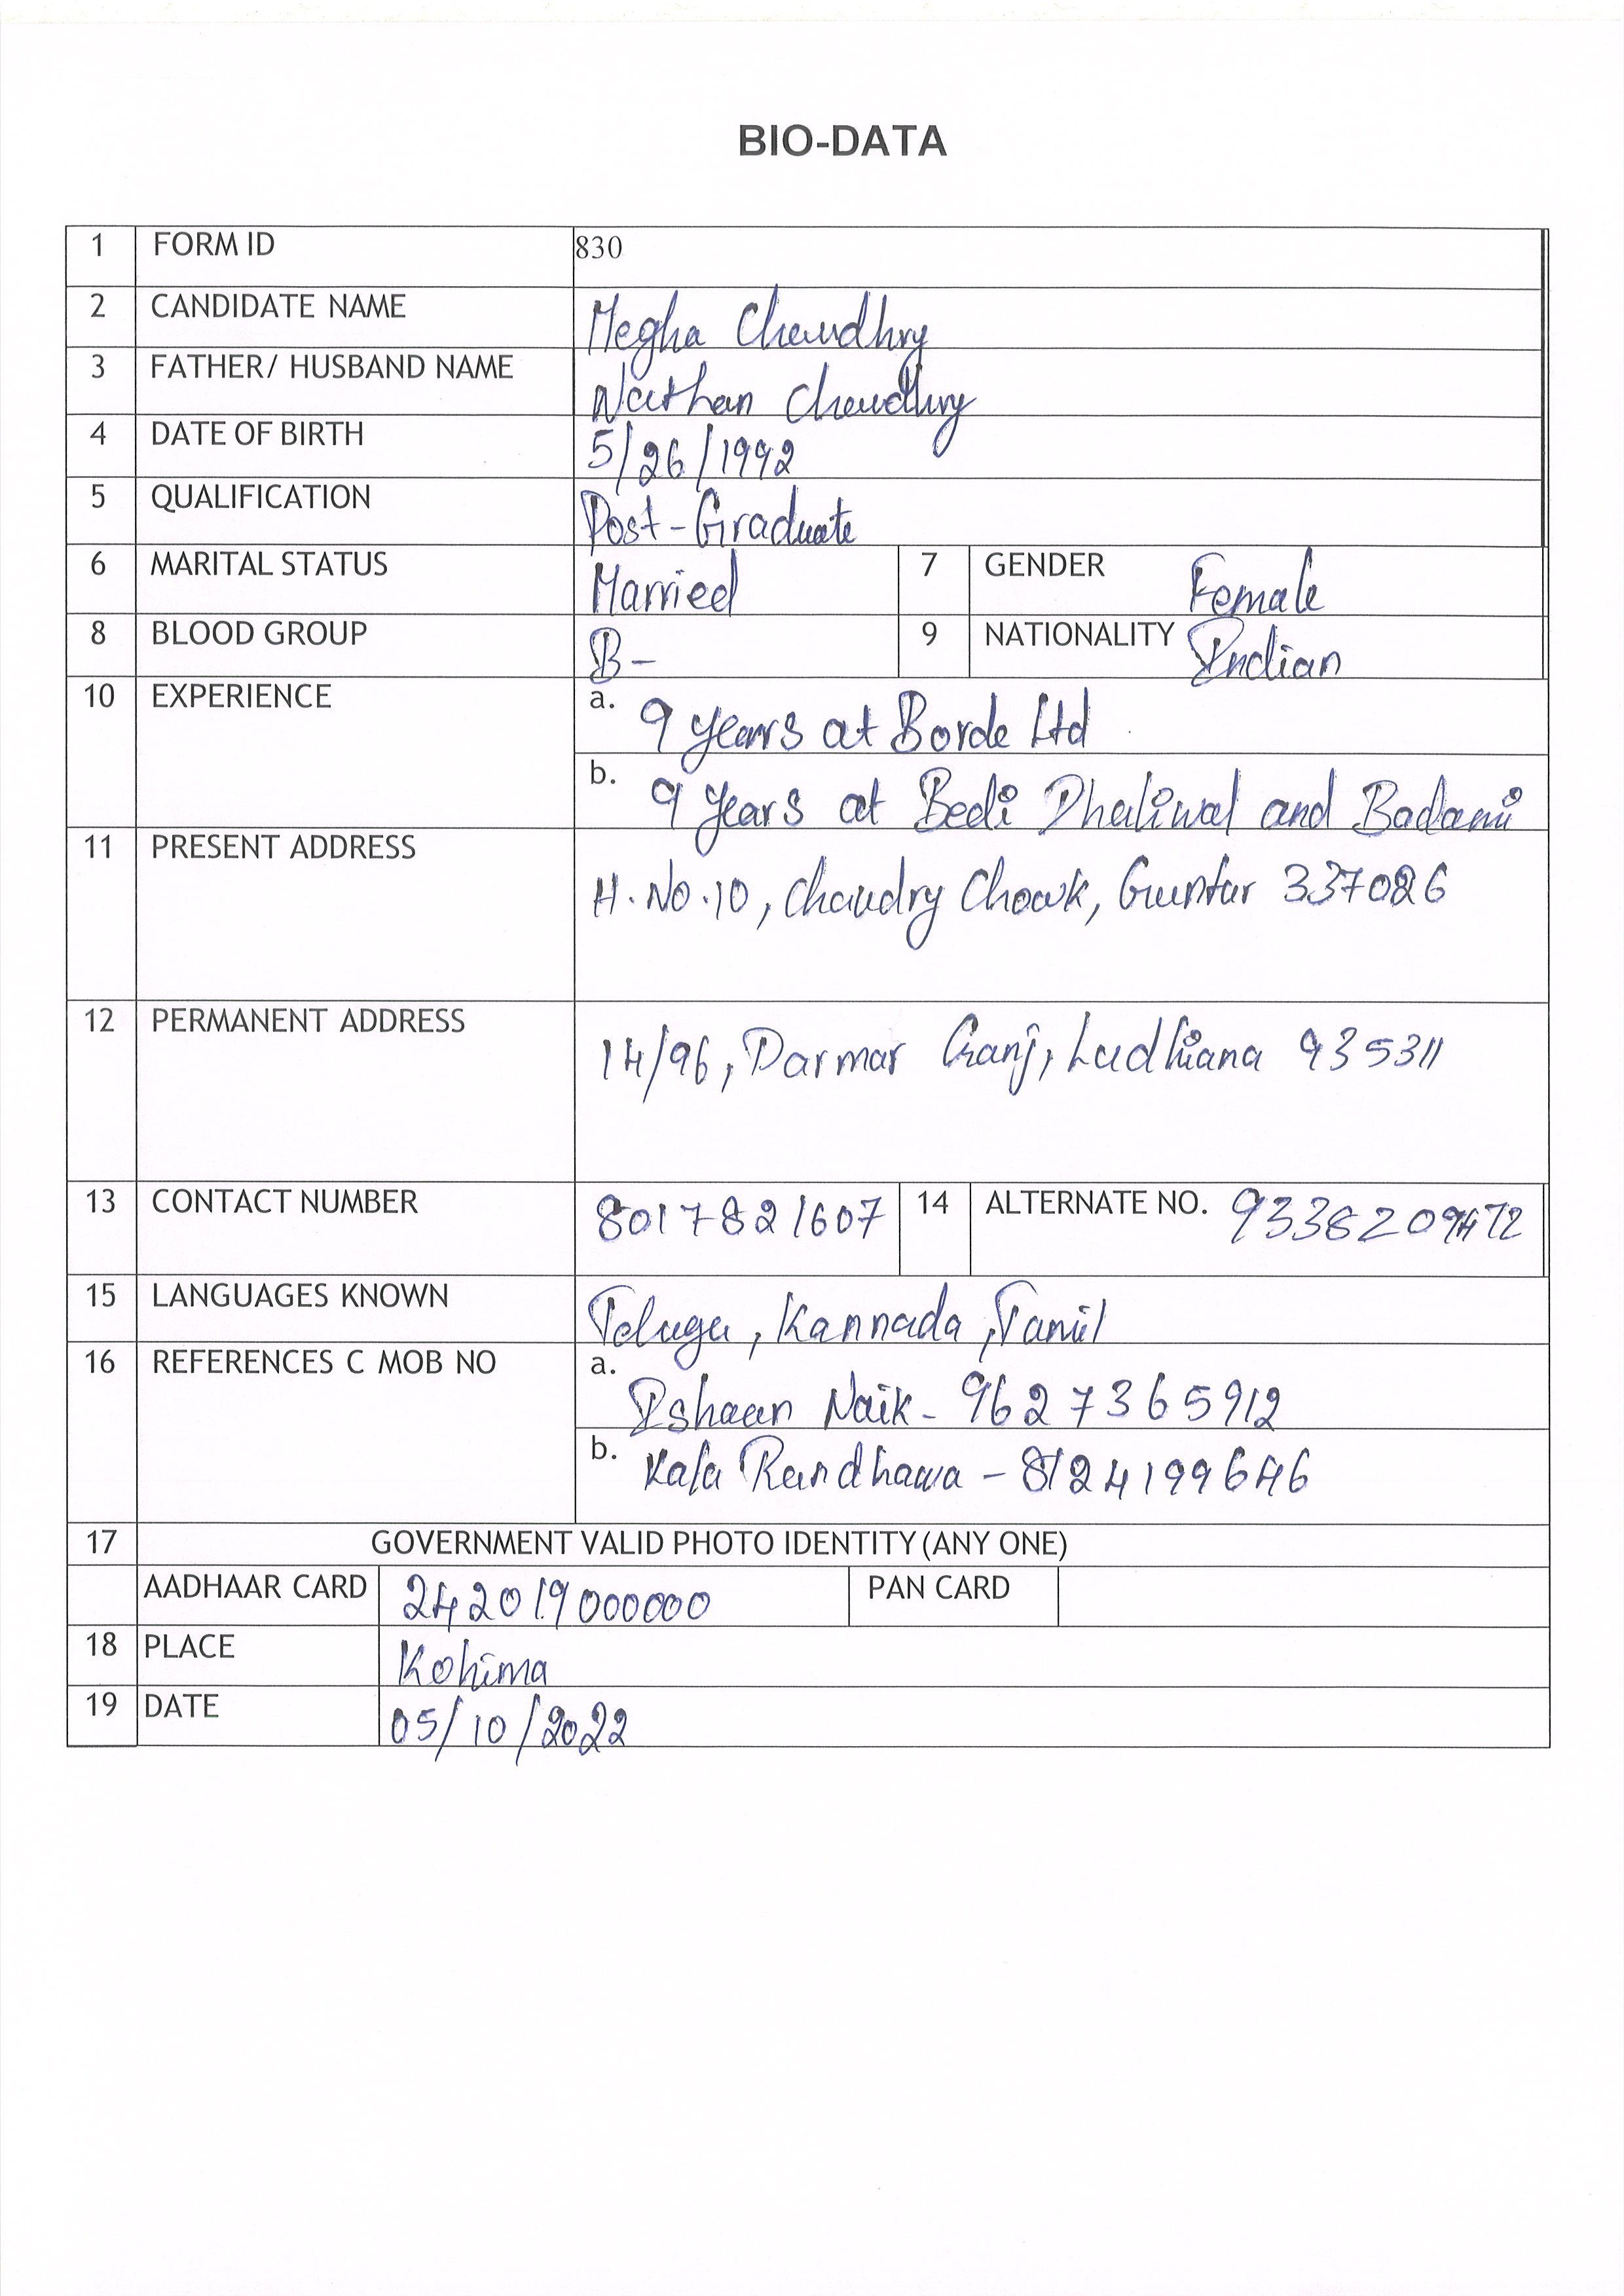 BIO-DATA
1 FORM ID 830
2 CANDIDATE NAME Megha Chaudhry
3 FATHER/ HUSBAND NAME Nathan Chaudhry
4 DATE OF BIRTH 5/26/1992
5 QUALIFICATION Post-Graduate
6 MARITAL STATUS Married 7 GENDER Female
8 BLOOD GROUP B- 9 NATIONALITY Indian
10 EXPERIENCE a. 9 years at Borde Ltd
b. 9 years at Bedi Dhaliwal and Badami
11 PRESENT ADDRESS
H.No.10, Chaudry Chowk, Guntur 337026
12 PERMANENT ADDRESS
14/96, Darmar Ganj, Ludhiana 935311
13 CONTACT NUMBER 8017821607 14 ALTERNATE NO. 9338209472
15 LANGUAGES KNOWN Telugu, Kannada, Tamil
16 REFERENCES C MOB NO a. Ishaan Naik - 9627365912
b. Kala Randhawa - 8124199646
17 GOVERNMENT VALID PHOTO IDENTITY (ANY ONE)
AADHAAR CARD 242019000000 PAN CARD
18 PLACE Kohima
19 DATE 05/10/2022